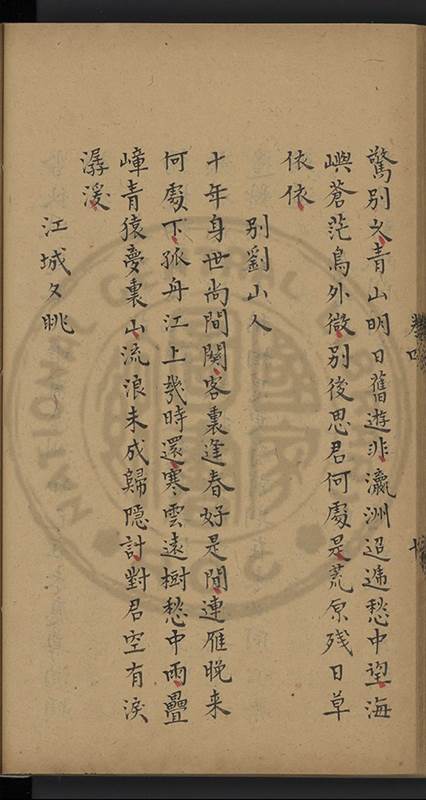 驚別久青山明日舊遊非瀛洲迢遞愁中望海
嶼蒼茫鳥外微別後思君何處是荒原殘日草
依依
別劉山人
十年身世尚間關客裏逢春好是閒連雁晚來
何處下孤舟江上幾時還寒雲遠樹愁中雨疊
嶂青猿夢裏山流浪未成歸隱計對君空有淚
潺湲
江城夕眺